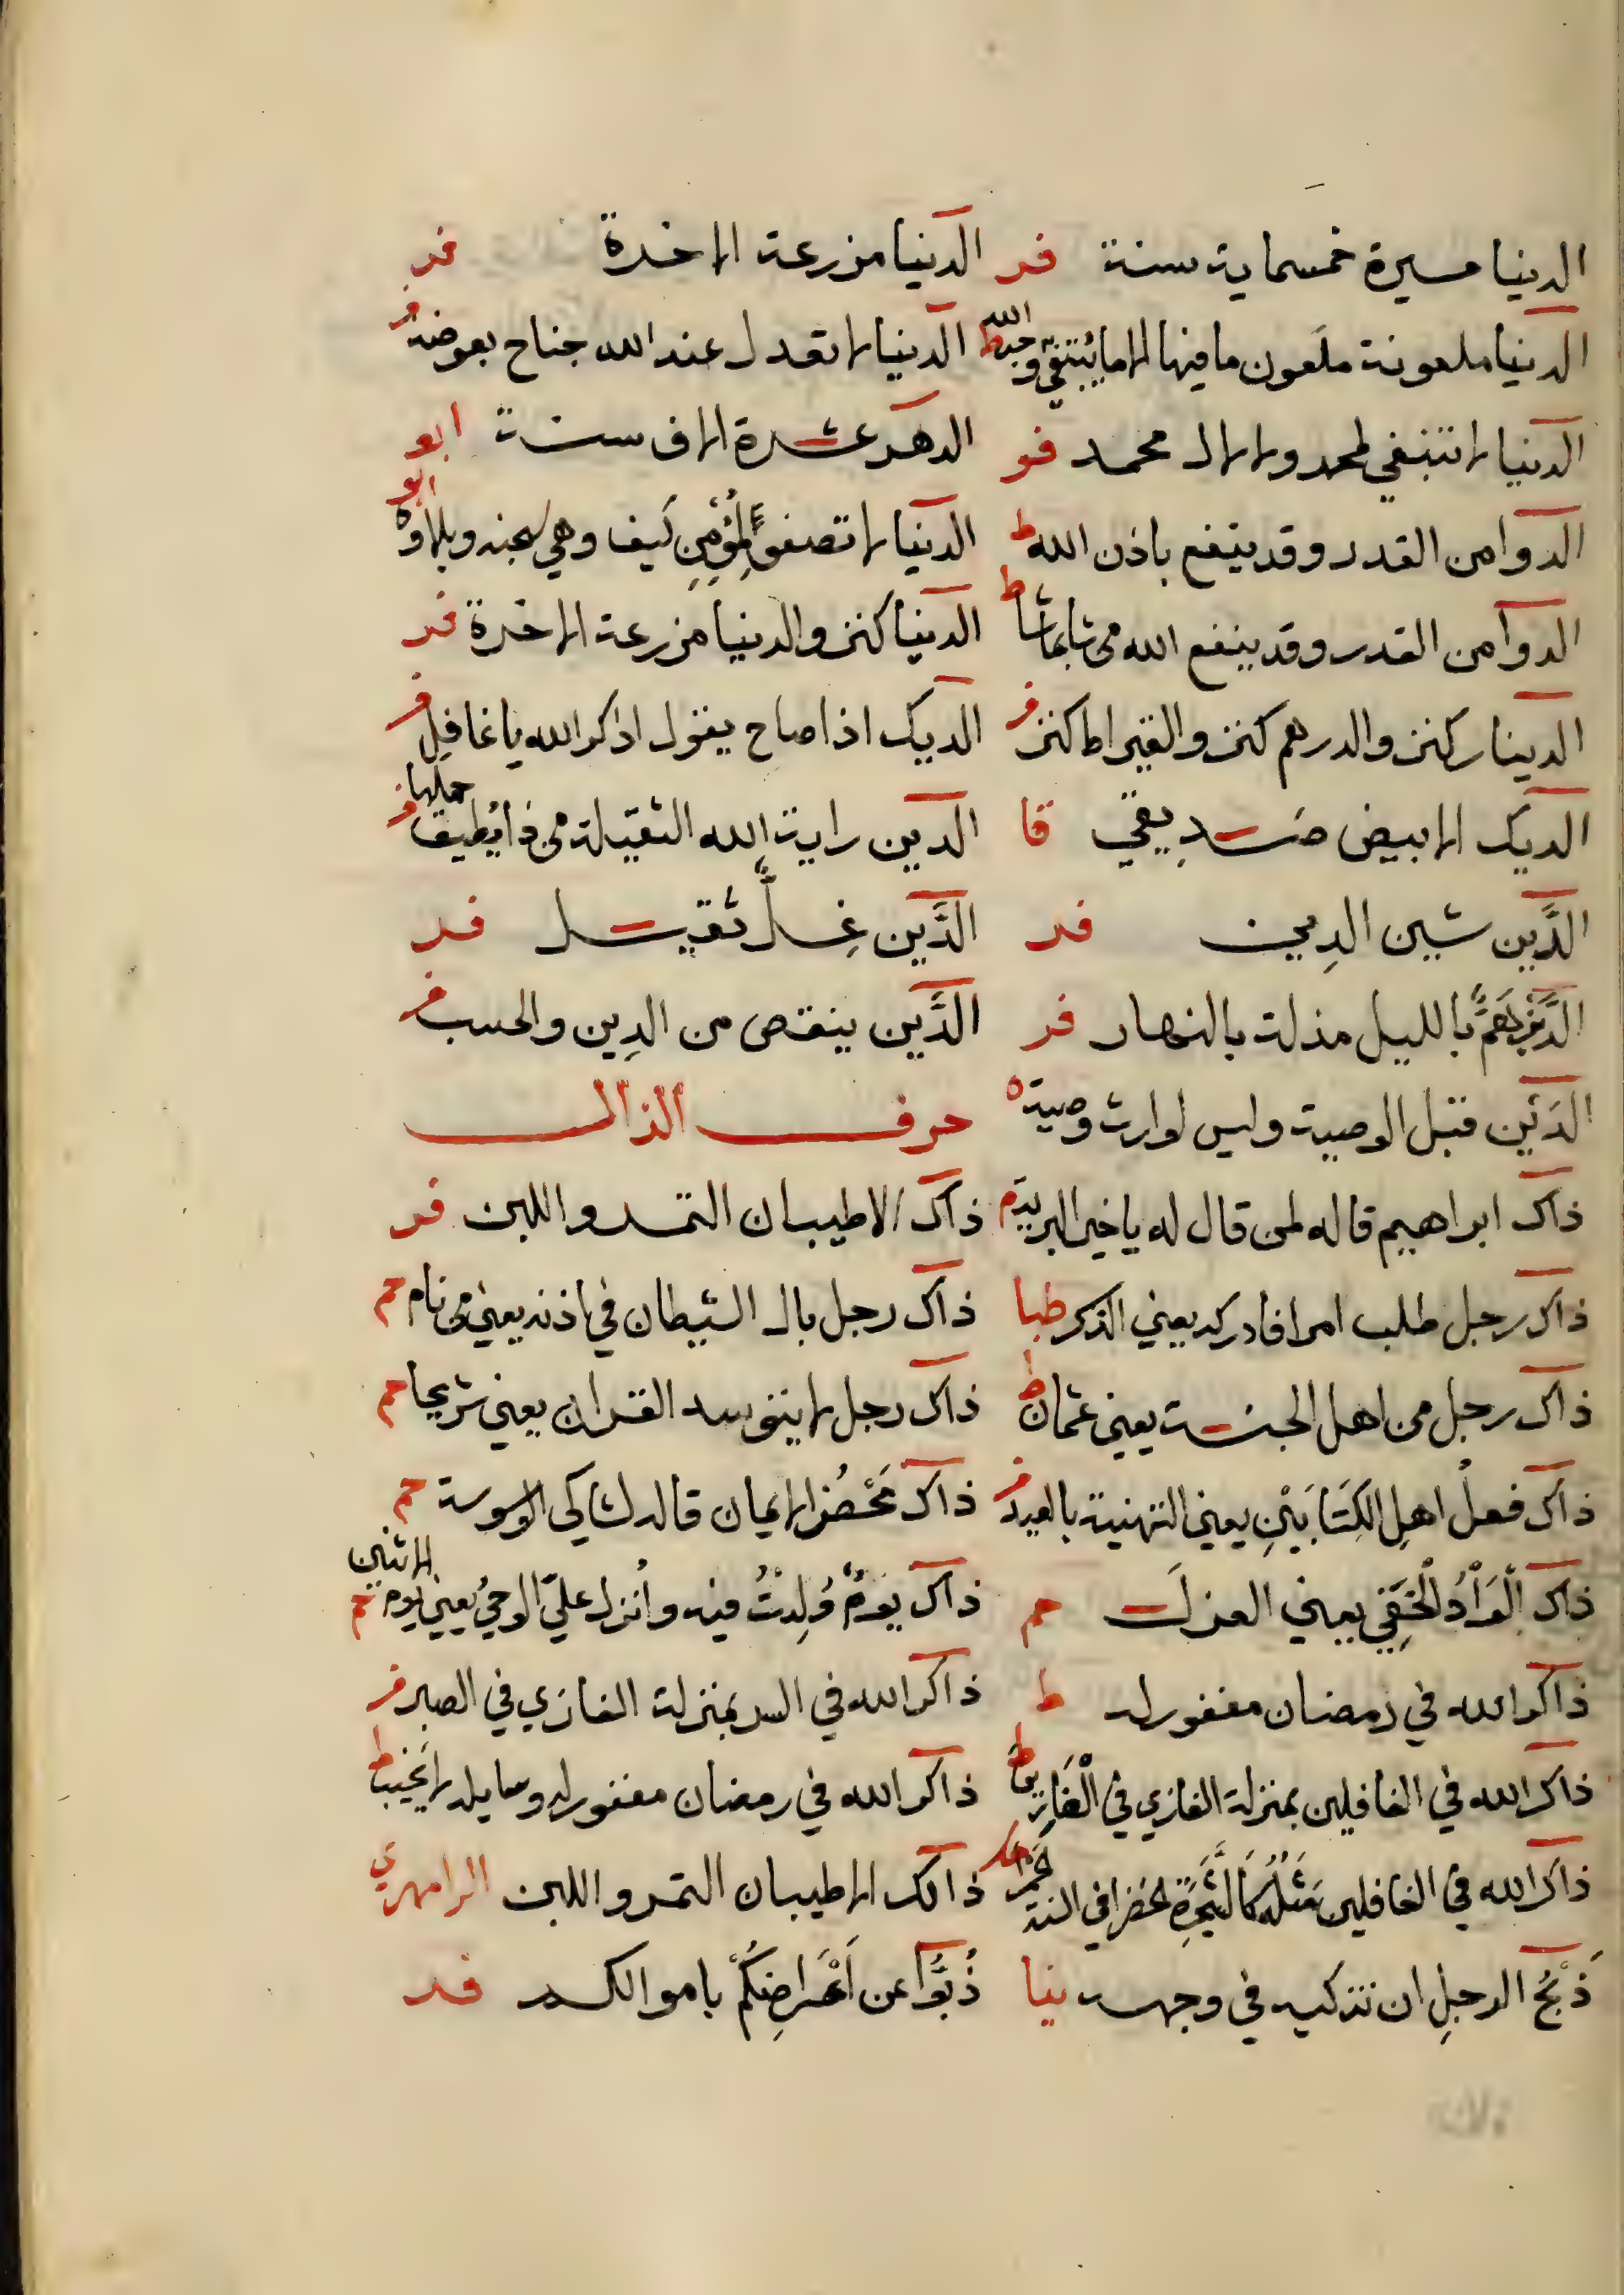 الدنيا مسيرة خمسماية سنة فر الدنيا مزرعة الاخرة فر
الدنيا ملعونة ملعون ما فيها الا ما يُبتغى به وجه الله ط الدنيا لا تعدل عند الله جناح بعوضة فر
الدنيا لا تنبغي لمحمد ولا لال محمد فر الدهر عشرة الاف سنة ابو
الدوا من القدر وقد ينفع باذن الله ط الدنيا لا تصفو لِمُؤْمِنٍ كَيف وهي سجنه وبلاؤه ابو
الدوا من القدر وقد ينفع الله من شا بما شا ط الدنيا كنز والدنيا مزرعة الاخرة فر
الدينار كنز والدرهم كنز والقيراط كنز فر الديك اذا صاح يقول اذكر الله يا غافل فر
الديك الابيض صَديقي قا الدين راية الله الثقيلة من ذا يُطيق حملها فر
الدَّين شين الدِين فر الدَّين غِلٌّ ثقيل فر
الدَّين هَمٌّ بالليل مذلة بالنهار فر الدَّين ينقص من الدِين والحسب فر
الدَين قبل الوصية وليس لوارث وصية ه حرف الذال
ذاك ابراهيم قاله لمن قال له يا خير البرية م ذاك الاطيبان التمر واللبن فر
ذاك رجل طلب امرا فادركه يعني الذكر طبا ذاك رجل بال الشيطان في اذنه يعني من نام حم
ذاك رجل من اهل الجنة يعني عثمان ط ذاك رجل لا يتوسد القران يعني شريحا حم
ذاك فعلُ اهلِ الكِتَابَيْنِ يعني التهنية بالعيد فر ذاك مَحْضُ الايمان قاله لشاكي الوسوسة حم
ذاك الْوَأْدُ الْخَفِي يعني العزل حم ذاك يَومٌ وُلِدْتُ فيه وأُنزل عليّ الوحيُ يعني يوم الاثنين حم
ذاكر الله في رمضان مغفور له ط ذاكر الله في السر بمنزلة الغازي في الصبر فر
ذاكر الله في الغافلين بمنزلة الغازي في الْفَارين ط ذاكر الله في رمضان مغفور له وسايله لا يخيب ط
ذاكر الله في الغافلين مَثَلُهُ كَالشَّجَرَةِ لخضرا في ذالك الاطيبان التمر واللبن الرامهرمزي
ذَبْحُ الرجلِ ان تزكيه في وجهه نيا ذُبُّوا عن اَعْرَاضِكُمْ باموالكم فر